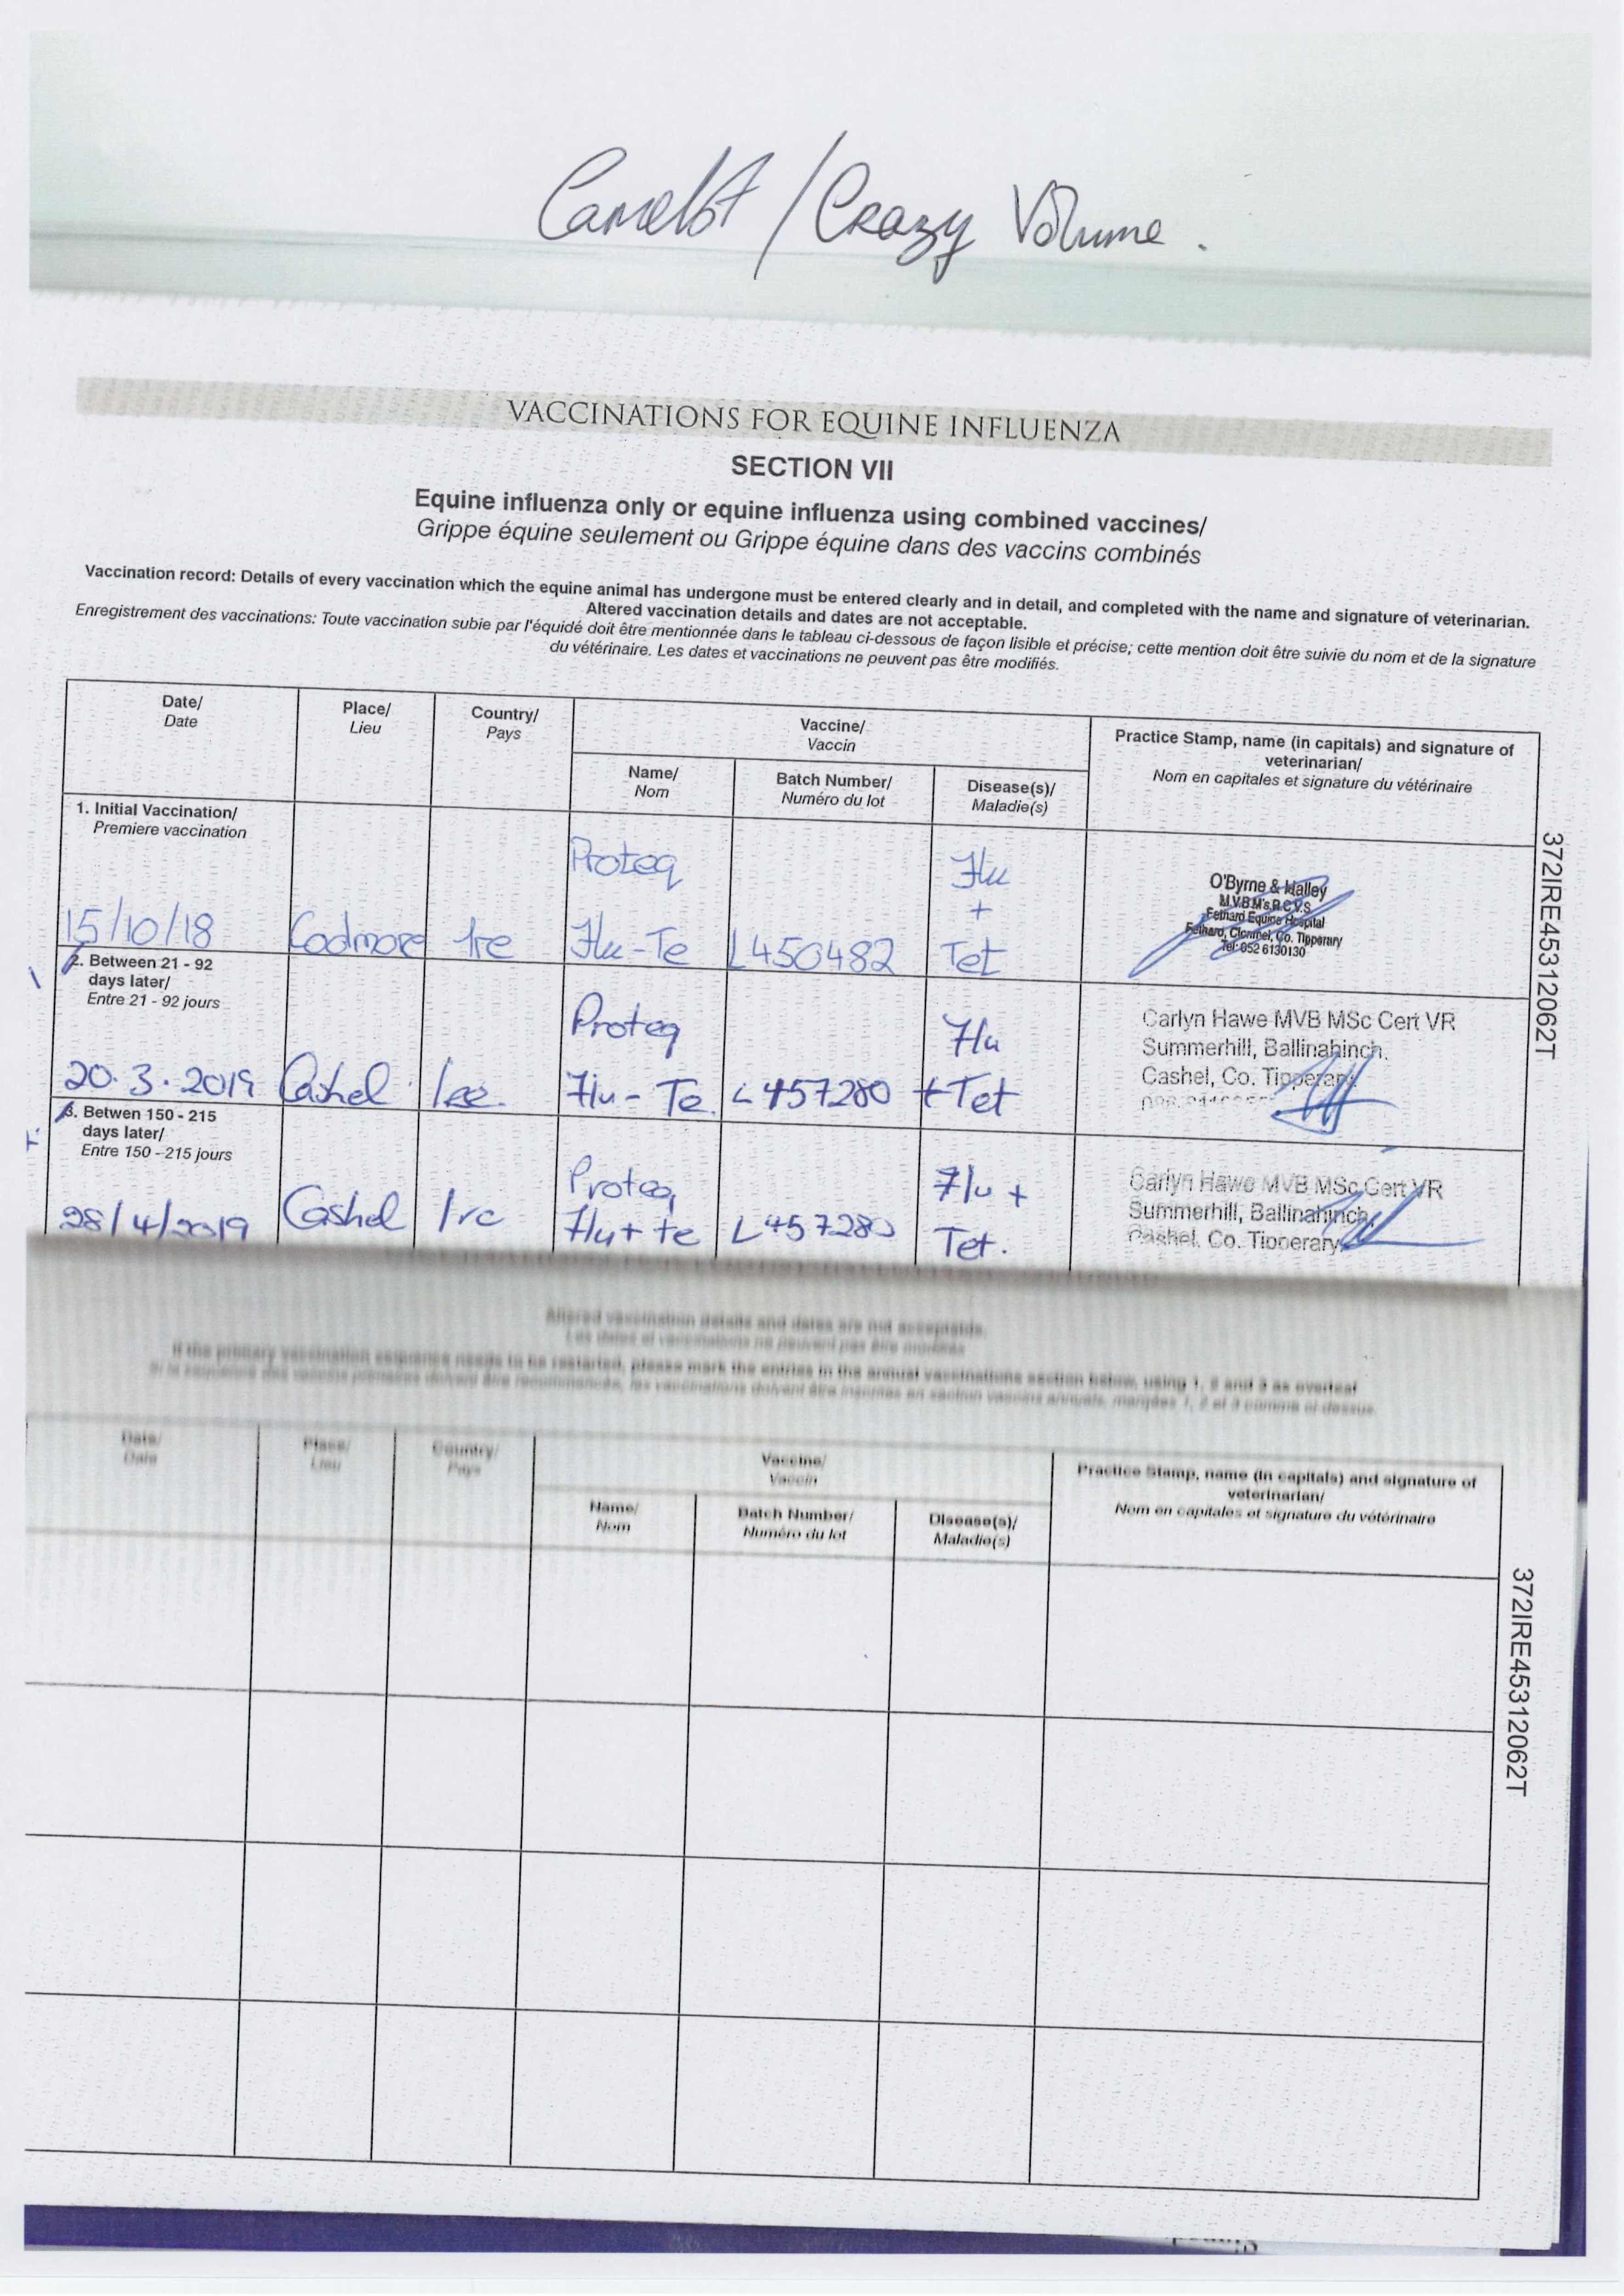 Camelot / Crazy Volume.
VACCINATIONS FOR EQUINE INFLUENZA
SECTION VII
Equine influenza only or equine influenza using combined vaccines/
Grippe équine seulement ou Grippe équine dans des vaccins combinés
Vaccination record: Details of every vaccination which the equine animal has undergone must be entered clearly and in detail, and completed with the name and signature of veterinarian.
Altered vaccination details and dates are not acceptable.
Enregistrement des vaccinations: Toute vaccination subie par l'équidé doit être mentionnée dans le tableau ci-dessous de façon lisible et précise; cette mention doit être suivie du nom et de la signature
du vétérinaire. Les dates et vaccinations ne peuvent pas être modifiés.
Date/
Date
Place/
Lieu
Country/
Pays
Vaccine/
Vaccin
Name/
Nom
Batch Number/
Numéro du lot
Disease(s)/
Maladie(s)
Practice Stamp, name (in capitals) and signature of
veterinarian/
Nom en capitales et signature du vétérinaire
1. Initial Vaccination/
Premiere vaccination
15/10/18
Coolmore
Ire
Proteq
Flu-Te
L450482
Flu
+
Tet
O'Byrne & Halley
M.V.B.M's.R.C.V.S
Fethard Equine Hospital
Fethard, Clonmel, Co. Tipperary
Tel: 052 6130130
2. Between 21 - 92
days later/
Entre 21 - 92 jours
1
20.3.2019
Cashel
Ire.
Proteq
Flu-Te.
L457280
Flu
+Tet
Carlyn Hawe MVB MSc Cert VR
Summerhill, Ballinahinch,
Cashel, Co. Tipperary
3. Betwen 150 - 215
days later/
Entre 150 - 215 jours
28/4/2019
Cashel
Ire
Proteq
Flu + te
L457280
Flu +
Tet.
Carlyn Hawe MVB MSc Cert VR
Summerhill, Ballinahinch,
Cashel, Co. Tipperary
372IRE45312062T
Altered vaccination details and dates are not acceptable.
Les dates et vaccinations ne peuvent pas être modifiés
If the primary vaccination sequence needs to be restarted, please mark the entries in the annual vaccinations section below, using 1, 2 and 3 as overleaf
Date/
Date
Place/
Lieu
Country/
Pays
Vaccine/
Vaccin
Name/
Nom
Batch Number/
Numéro du lot
Disease(s)/
Maladie(s)
Practice Stamp, name (in capitals) and signature of
veterinarian/
Nom en capitales et signature du vétérinaire
372IRE45312062T